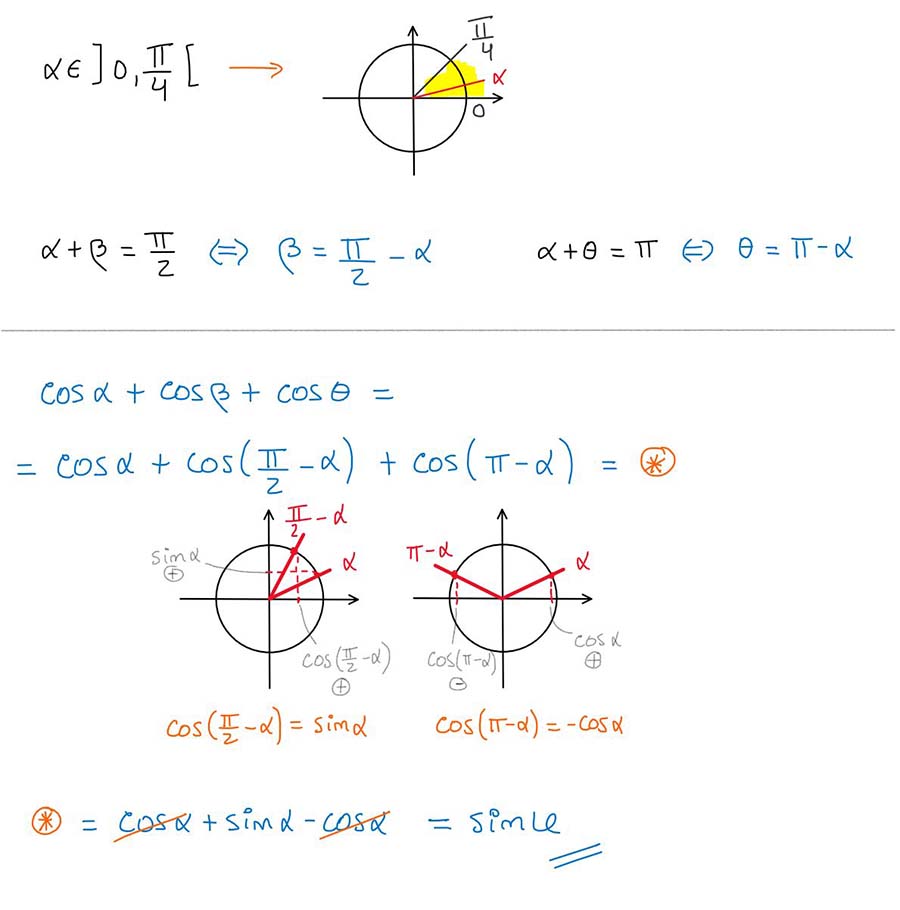 α ∈ ]0, π/4[ →
π/4
α
0
α + β = π/2 ⇔ β = π/2 - α
α + θ = π ⇔ θ = π - α
cos α + cos β + cos θ =
= cos α + cos(π/2 - α) + cos(π - α) = ⊛
π/2 - α
α
sin α
⊕
cos(π/2 - α)
⊕
π - α
α
cos(π - α)
⊖
cos α
⊕
cos(π/2 - α) = sin α
cos(π - α) = -cos α
⊛ = cos α + sin α - cos α = sin α